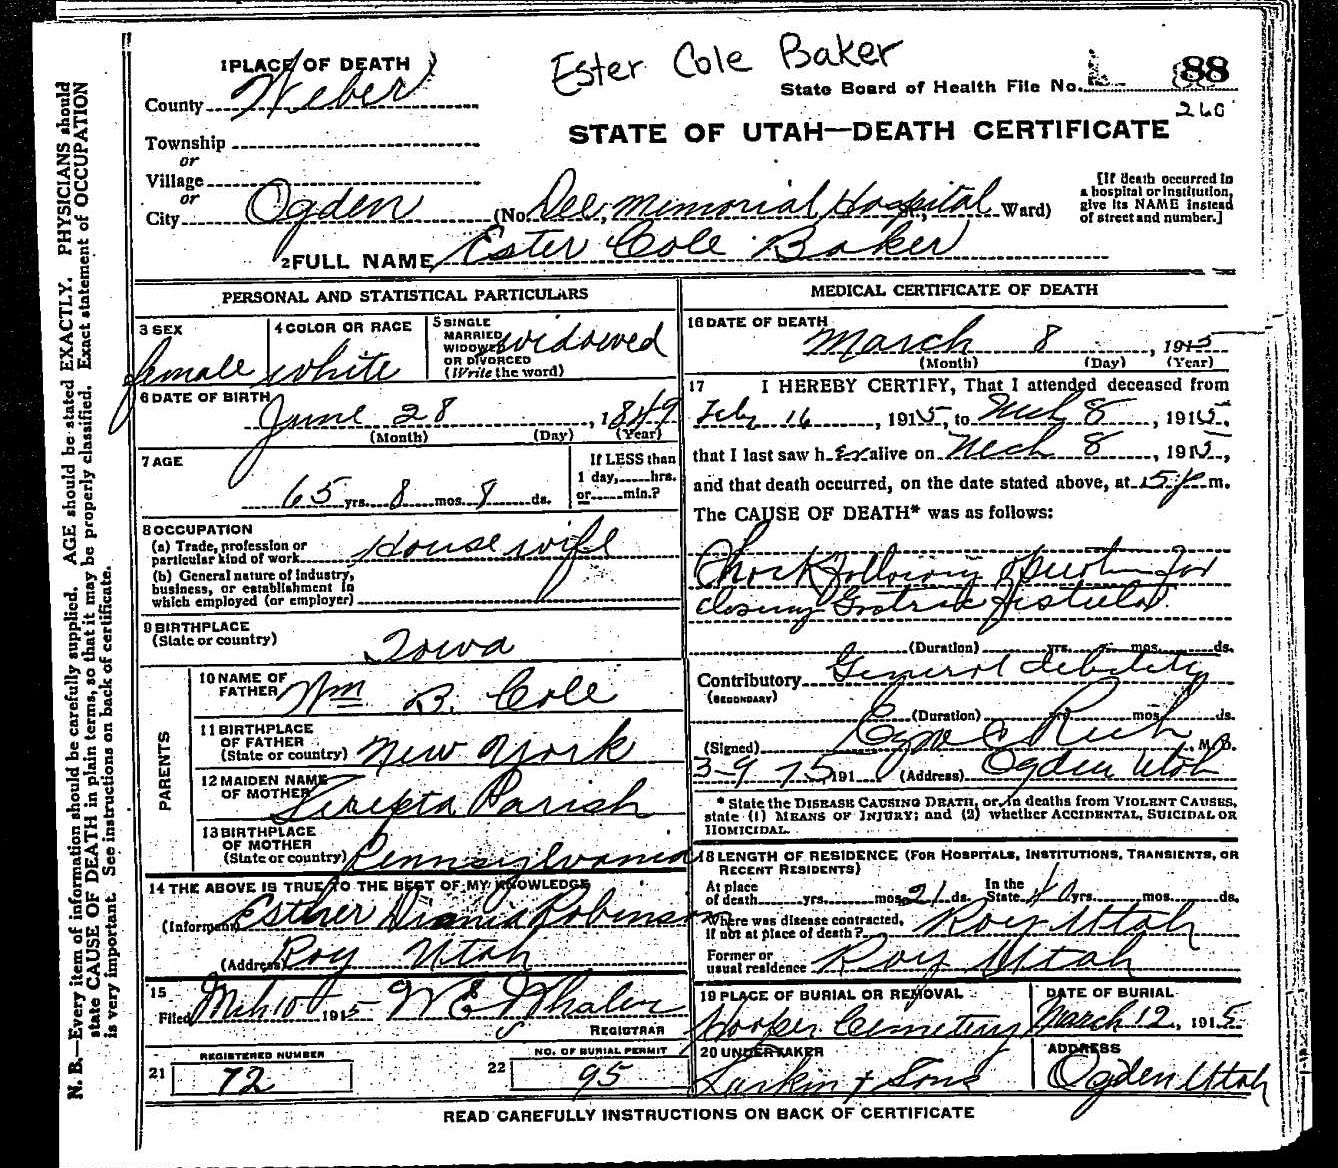 Ester Cole Baker
1 PLACE OF DEATH
County Weber
State Board of Health File No. 88
260
STATE OF UTAH—DEATH CERTIFICATE
Township
or
Village
or
City Ogden (No. Dee Memorial Hospital St., Ward)
[If death occurred in
a hospital or institution,
give its NAME instead
of street and number.]
2 FULL NAME Ester Cole Baker
PERSONAL AND STATISTICAL PARTICULARS
3 SEX female
4 COLOR OR RACE white
5 SINGLE
MARRIED
WIDOWED
OR DIVORCED
(Write the word) widowed
6 DATE OF BIRTH
June 28, 1849
(Month) (Day) (Year)
7 AGE
65 yrs. 8 mos. 8 ds.
If LESS than
1 day, hrs.
or min.?
8 OCCUPATION
(a) Trade, profession or
particular kind of work House wife
(b) General nature of industry,
business, or establishment in
which employed (or employer)
9 BIRTHPLACE
(State or country) Iowa
PARENTS
10 NAME OF
FATHER Wm B. Cole
11 BIRTHPLACE
OF FATHER
(State or country) New York
12 MAIDEN NAME
OF MOTHER Parish
13 BIRTHPLACE
OF MOTHER
(State or country) Pennsylvania
14 THE ABOVE IS TRUE TO THE BEST OF MY KNOWLEDGE
(Informant) Esther Robinson
(Address) Roy Utah
15
Filed Mch 10 1915 W E Whalen
REGISTRAR
REGISTERED NUMBER
21 72
NO. OF BURIAL PERMIT
22 95
MEDICAL CERTIFICATE OF DEATH
16 DATE OF DEATH
March 8, 1915
(Month) (Day) (Year)
17 I HEREBY CERTIFY, That I attended deceased from
Feby 16, 1915, to Mch 8, 1915,
that I last saw her alive on Mch 8, 1915,
and that death occurred, on the date stated above, at 5 p m.
The CAUSE OF DEATH* was as follows:
Shock following operation for
closing Gastric fistula
(Duration) yrs. mos. ds.
Contributory General debility
(SECONDARY)
(Duration) yrs. mos. ds.
(Signed) Rich, M. D.
3-9 15 191 (Address) Ogden Utah
* State the DISEASE CAUSING DEATH, or, in deaths from VIOLENT CAUSES,
state (1) MEANS OF INJURY; and (2) whether ACCIDENTAL, SUICIDAL OR
HOMICIDAL.
18 LENGTH OF RESIDENCE (FOR HOSPITALS, INSTITUTIONS, TRANSIENTS, OR
RECENT RESIDENTS)
At place
of death yrs. mos. 21 ds.
In the
State 40 yrs. mos. ds.
Where was disease contracted,
if not at place of death? Roy Utah
Former or
usual residence Roy Utah
19 PLACE OF BURIAL OR REMOVAL
Hooper Cemetery
DATE OF BURIAL
March 12, 1915
20 UNDERTAKER
Larkin & Sons
ADDRESS
Ogden Utah
READ CAREFULLY INSTRUCTIONS ON BACK OF CERTIFICATE
N. B.—Every item of information should be carefully supplied. AGE should be stated EXACTLY. PHYSICIANS should
state CAUSE OF DEATH in plain terms, so that it may be properly classified. Exact statement of OCCUPATION
is very important. See instructions on back of certificate.